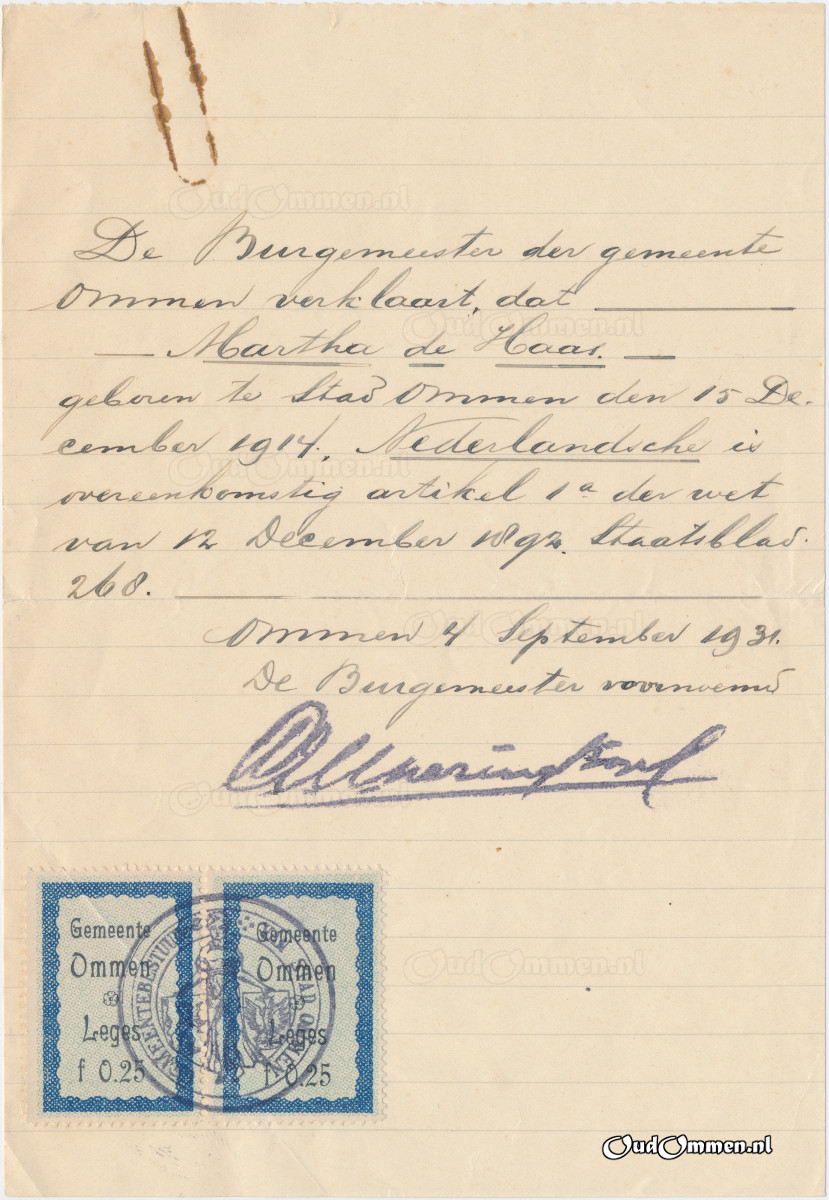 De Burgemeester der gemeente
Ommen verklaart, dat
Martha de Haas.
geboren te Stad Ommen den 15 De-
cember 1914, Nederlandsche is
overeenkomstig artikel 1a der wet
van 12 December 1892. Staatsblad
268.
Ommen 4 September 1931.
De Burgemeester voornoemd
Gemeente
Ommen
Leges
f 0.25
Gemeente
Ommen
Leges
f 0.25
GEMEENTEBESTUUR STAD OMMEN
OudOmmen.nl
OudOmmen.nl
OudOmmen.nl
OudOmmen.nl
OudOmmen.nl
OudOmmen.nl
OudOmmen.nl